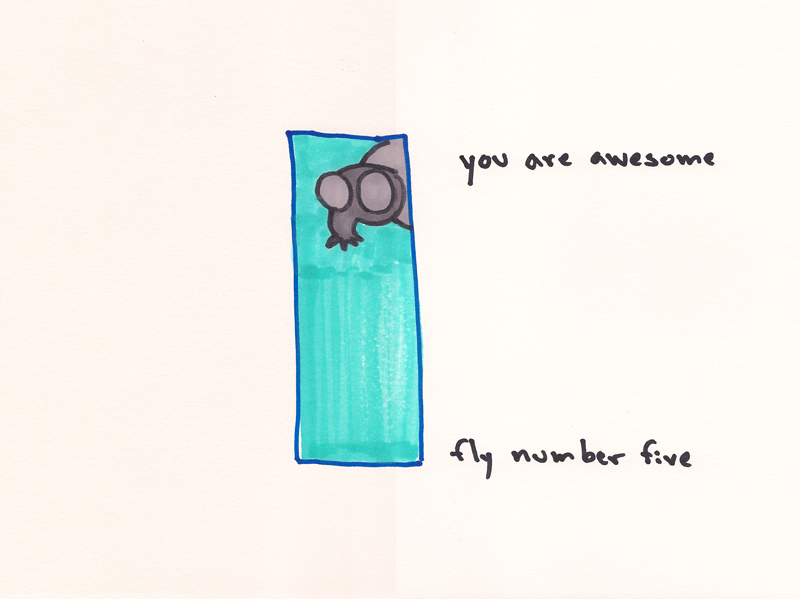 you are awesome
fly number five